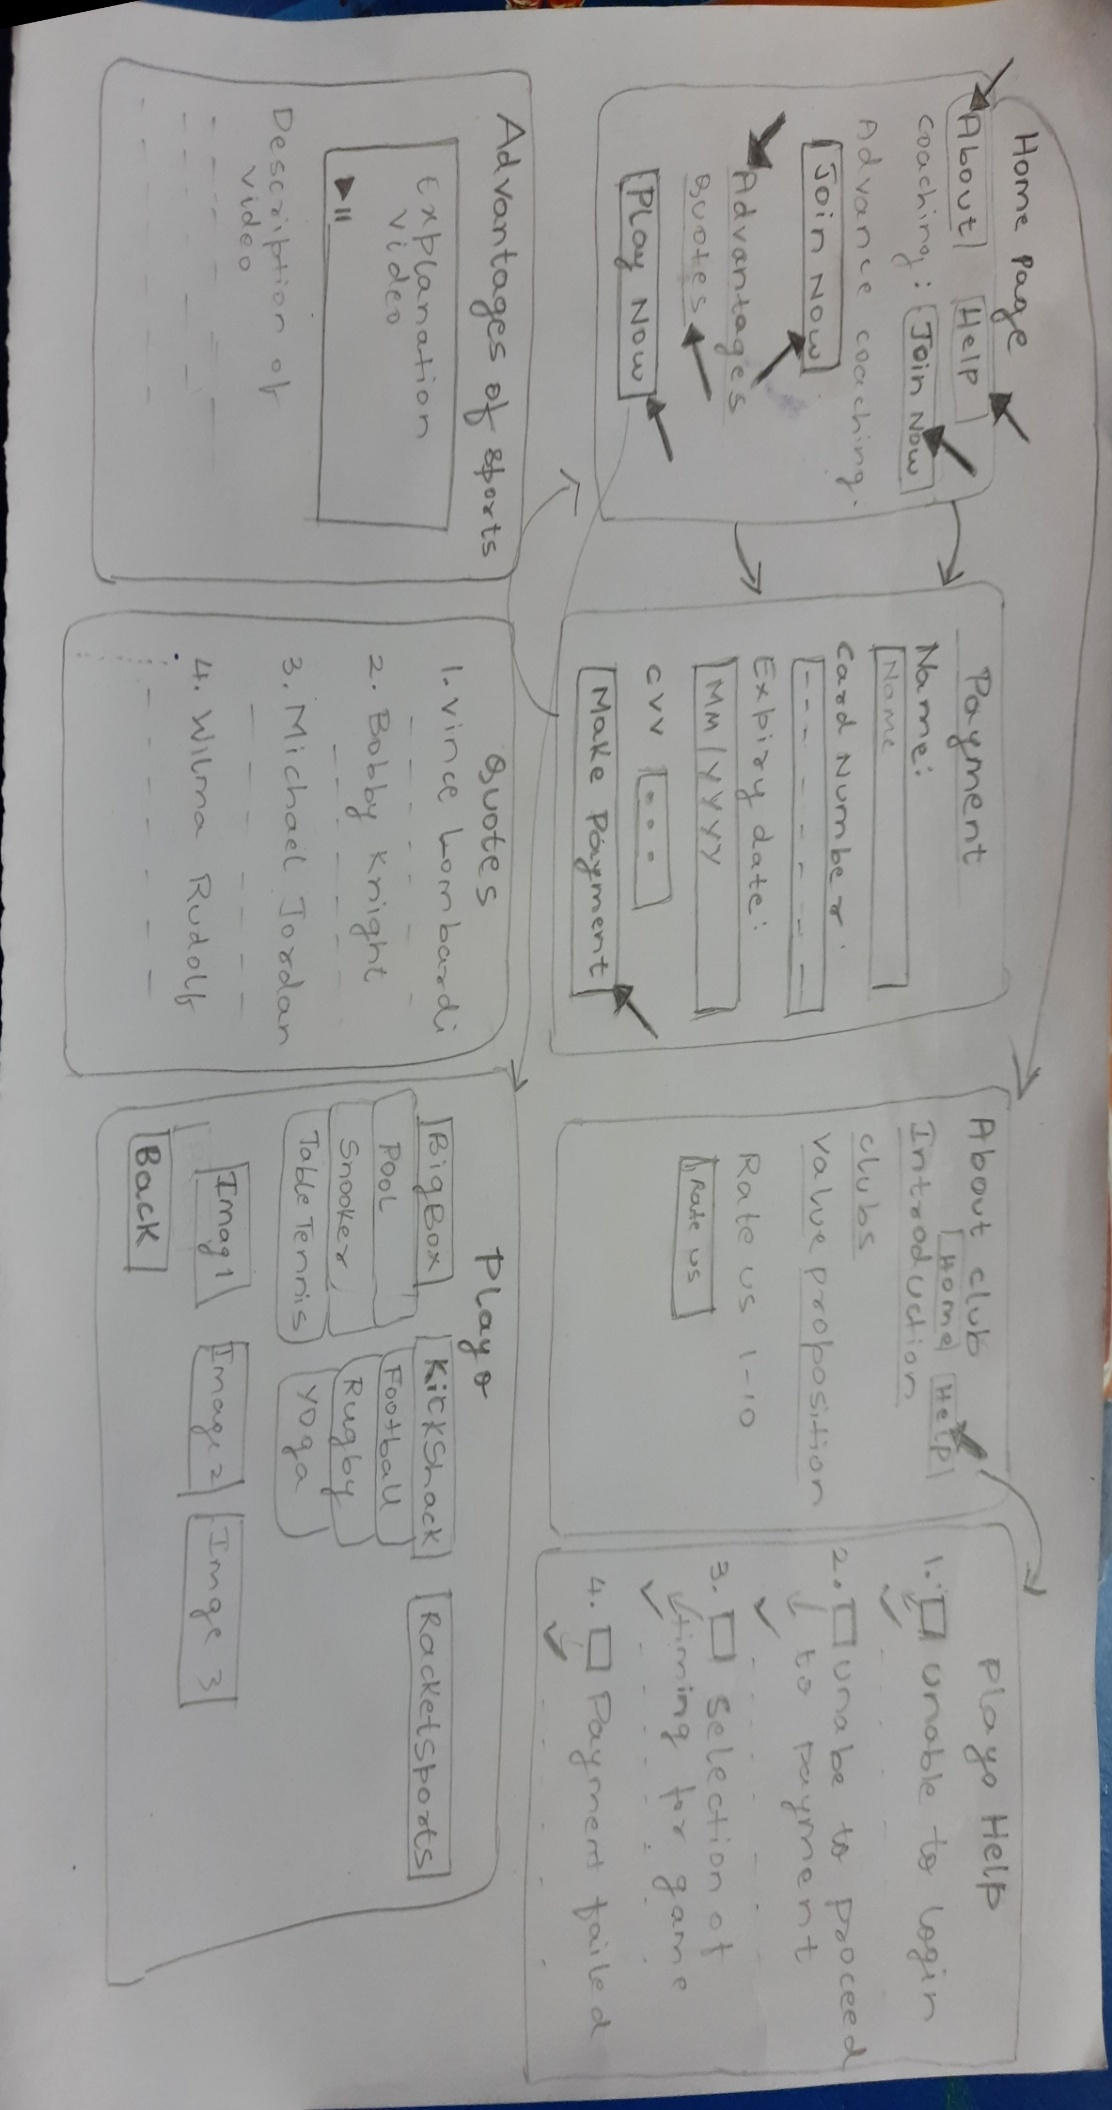 Home page
About Help
coaching: Join Now
Advance coaching:
Join Now
Advantages
Quotes
Play Now
Payment
Name:
Name
Card Number:
Expiry date:
MM/YYYY
CVV
Make Payment
About club
Home Help
Introduction
clubs
value proposition
Rate us 1-10
Rate us
Playo Help
1. Unable to login
2. Unabe to proceed
to payment
3. Selection of
timing for game
4. Payment failed
Advantages of sports
Explanation
video
Description of
video
Quotes
1. Vince Lombardi
2. Bobby Knight
3. Michael Jordan
4. Wilma Rudolf
Playo
BigBox KickShack Racketsports
Pool Football
Snooker, Rugby
Table Tennis Yoga
Imag1 Image2 Imge 3
Back